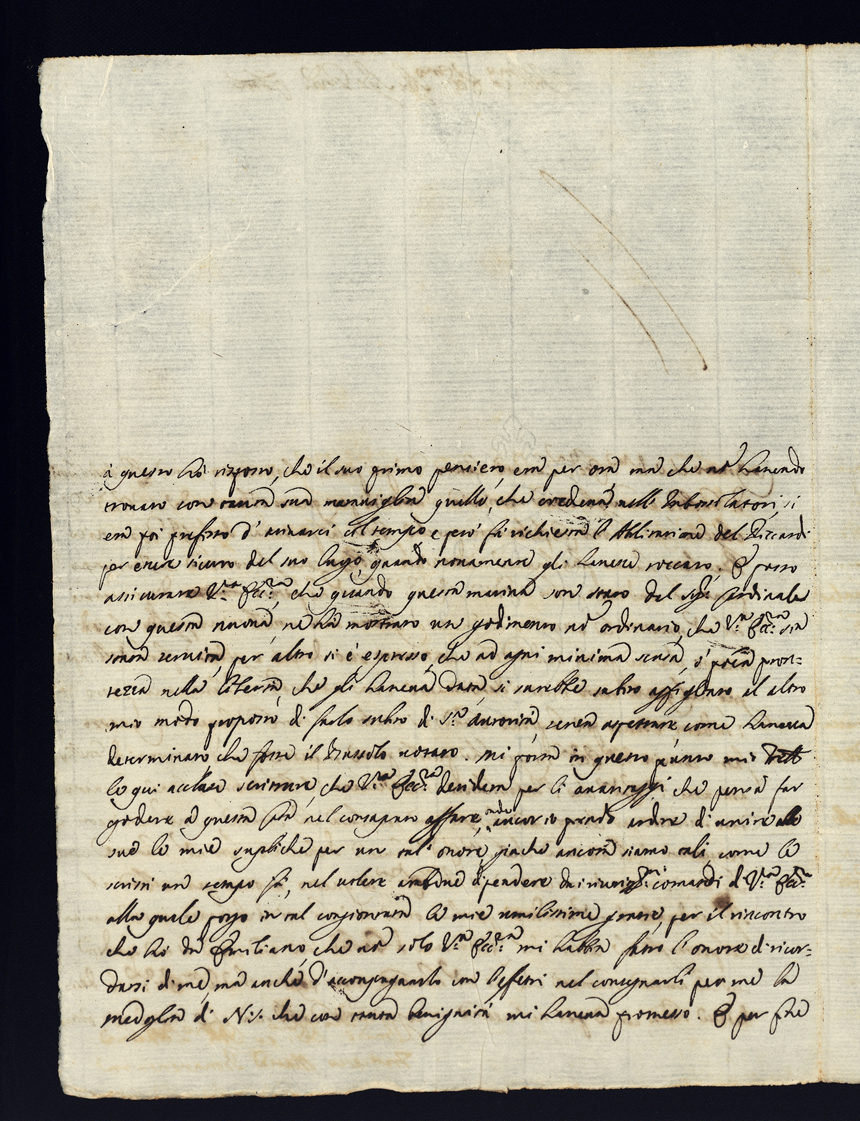 à questo hò risposto, che il suo primo pensiero era per ora ma che nõ havendo
trovato con tanta sua meraviglia quello, che credeva nell' Imbossolatori, si
era poi prefisso d' avinarci col tempo e però fù richiesta l' Abilitazione del Riccardi
per essere sicuro del suo luogo quando novamente gli havesse toccato. E posso
assicurare V.ra Ecc.za che quando questa mattina son stato dal Sig.r Cardinale
con questa nuova, ne hà mostrato un godimento nõ ordinario che V.ra Ecc.za sia
stata servita, per altro si è espresso, che ad ogni minima scusa, ò poca pron=
tezza nella libertà che gli haveva data si sarebbe subito appigliato al altro
mio modo proposto di farlo subito di S.a autorità senza aspettare come haveva
determinato che fosse il Bussolo votato. Mi porta in questo punto mio
le qui accluse scritture, che V.ra Ecc.za desidera per li avantaggi che pensa far
godere a questa Città nel consaputo affare, onde ancor io prendo ardire di unire alle
sue le mie suppliche per un tal' onore, giache ancora siamo tali, come le
scrissi un tempo fà, nel volere ambedue dipendere dai riveriti comandi di V.ra Ecc.za
alla quale porgo in tal congiontura le mie umilissime grazie per il riscontro
che hò da Emiliano, che nõ solo V.ra Ecc.za mi habbia fatto l' onore di ricor=
darsi di me, ma anche d' accompagnarlo con l' effetti nel consegnarli per me la
medaglia di N.S. che con tanta benignità mi haveva promesso. E per fine